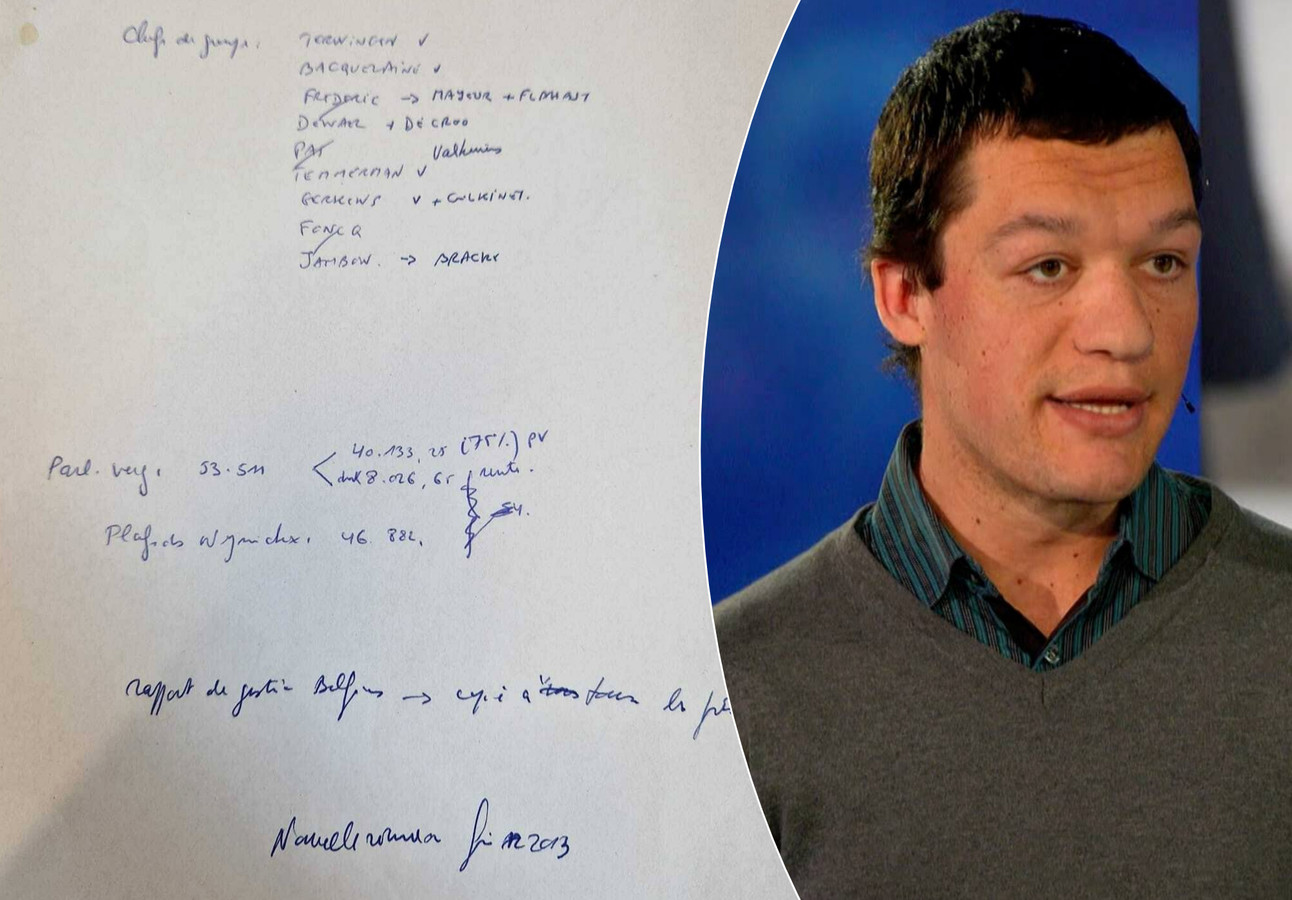 Chefs de groupe : TERWINGEN v
BACQUELAINE v
FREDERIC -> MAYEUR + FLAHAUT
DEWAEL + DE CROO
PAS Valkeniers
TEMMERMAN v
GERKENS v + GILKINET.
FONCQ
JAMBON. -> BRACKE
Parl. verg. 53.511 < 40.133,25 (75%) PV
8.026,65 rente.
54.
Plafonds Wyninckx. 46.882,
rapport de gestion Belfius -> copie à tous les
Nouvelle fin 2013